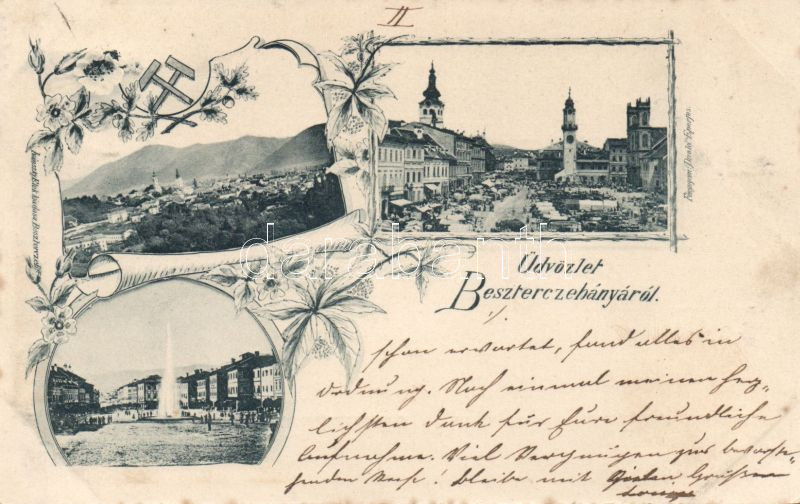 II
Üdvözlet
Beszterczebányáról.
darabanth
schon erwartet, fand alles in
Ordnung. Noch einmal meinen herz-
lichsten Dank für Eure freundliche
Aufnahme. Viel Vergnügen zur bevorste-
henden Reise! Bleibe mit Grüßen